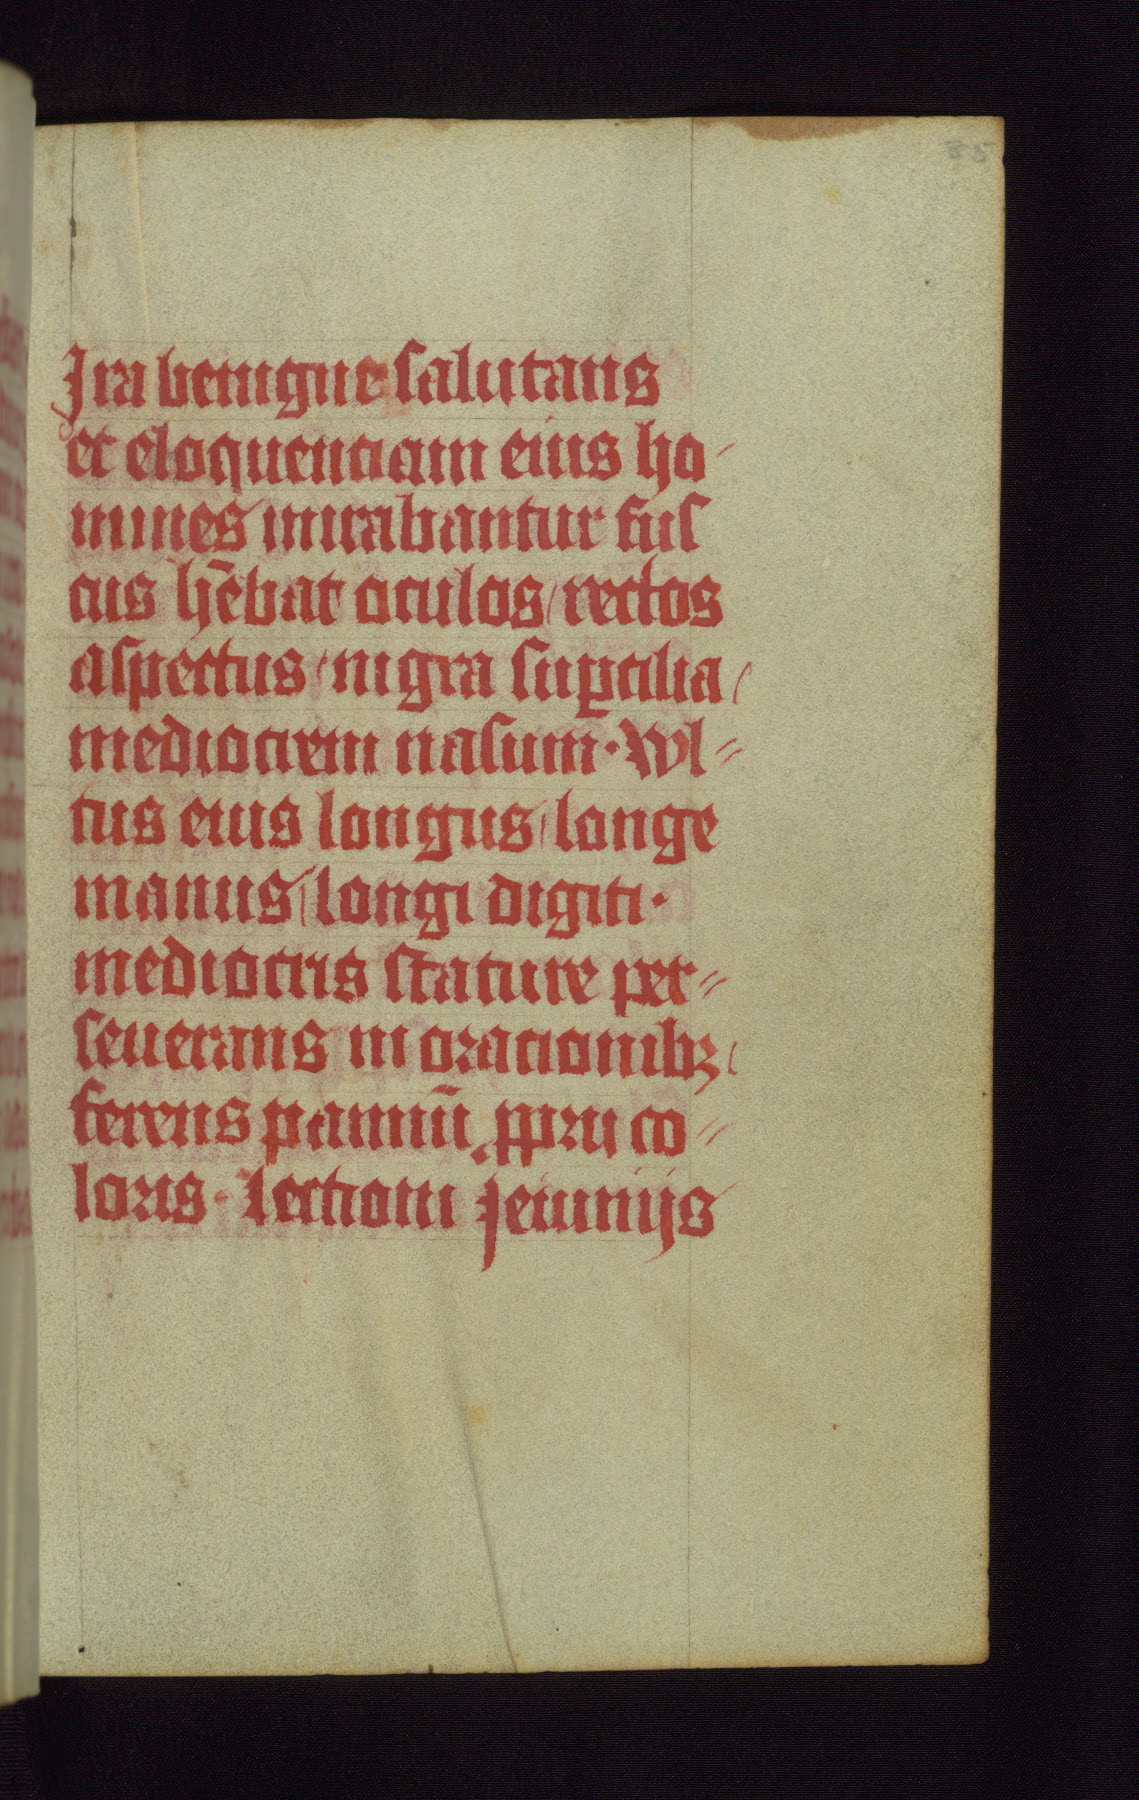 85
Ira benigne salutans
et eloquenciam eius ho-
mines mirabantur fus
cus hēbat oculos / rectos
aspectus / nigra suꝑcilia /
mediocrem nasum · Wl=
tus eius longus / longe
manus / longi digiti ·
mediocris stature per=
seuerans in oracionibꝫ /
ferens pannū ꝓprii co=
loris · Lectioni Jeiunijs